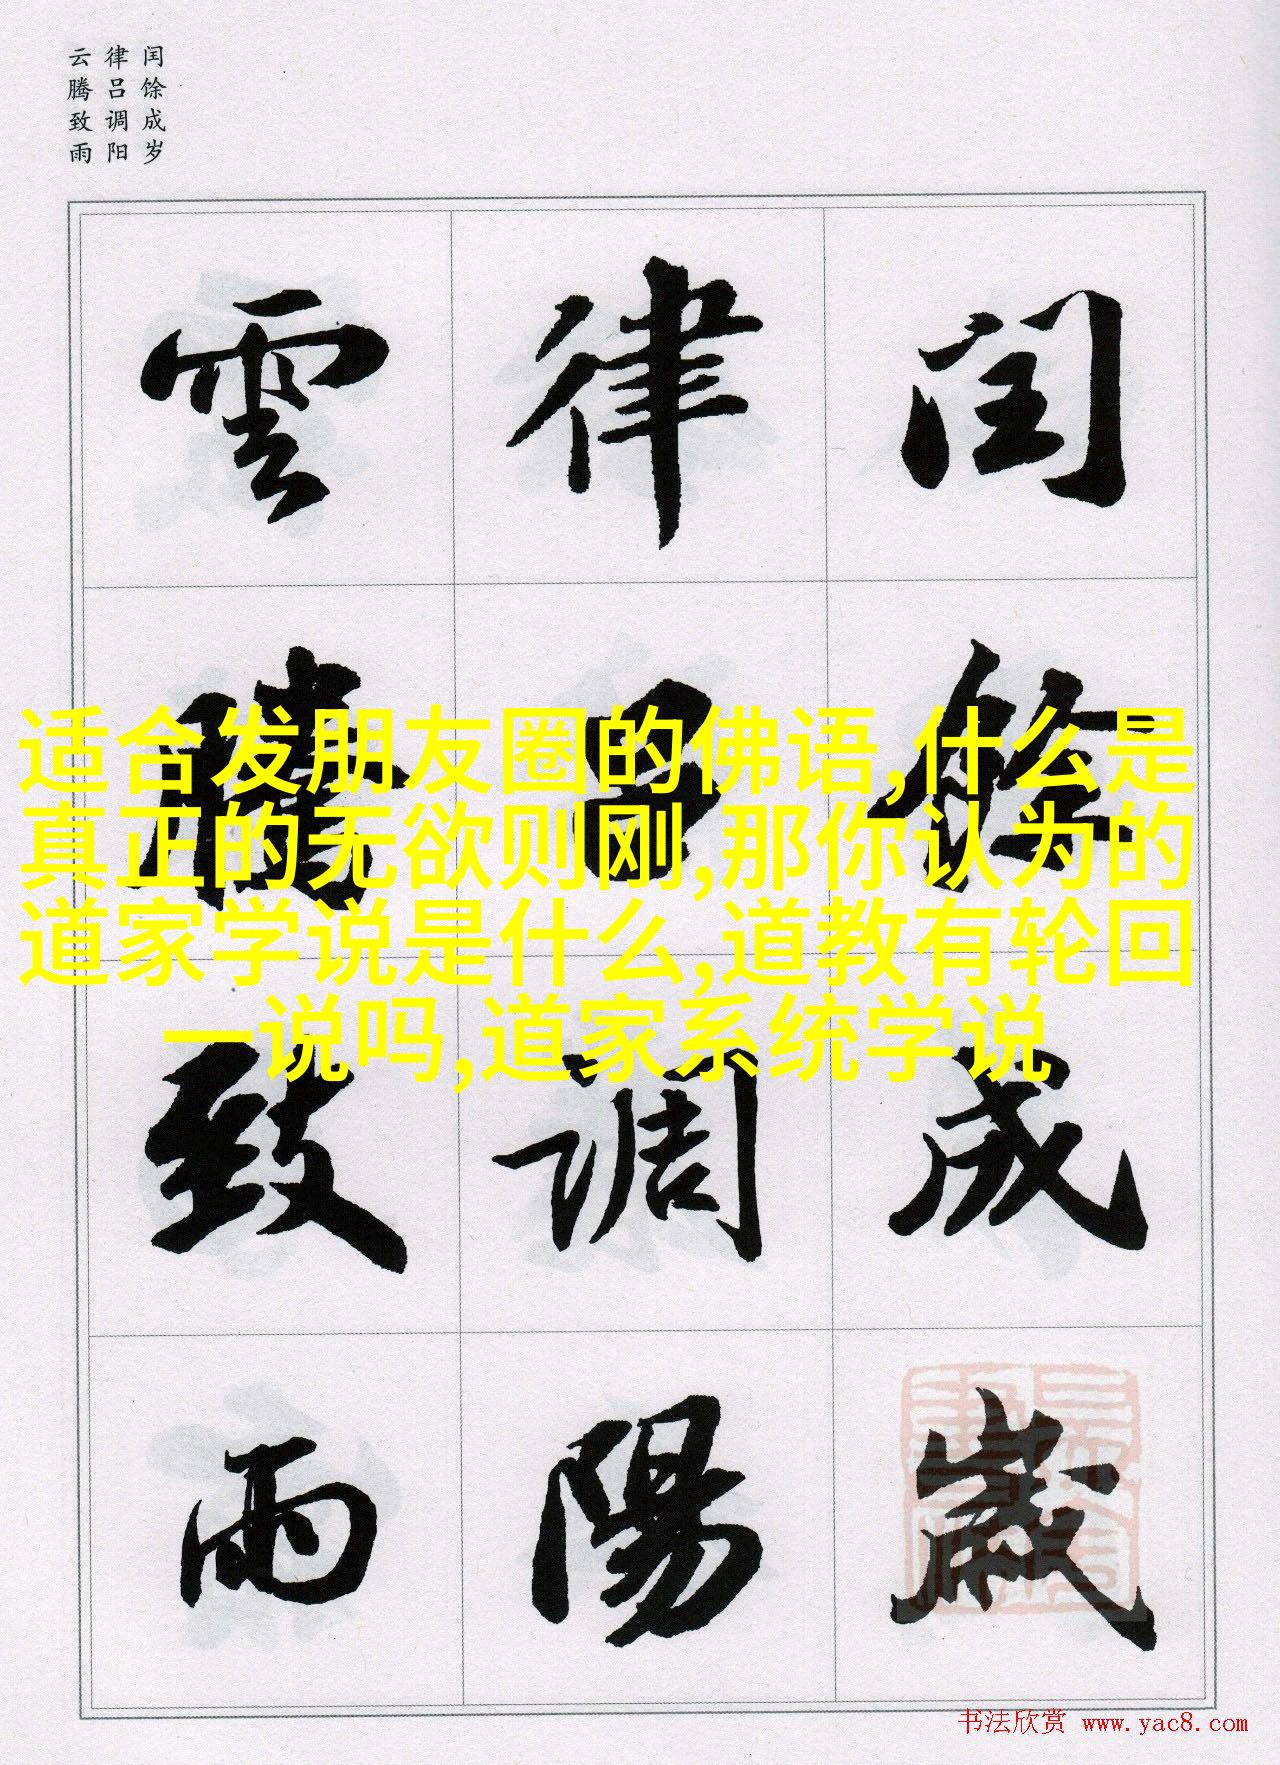 闰馀成岁
律吕调阳
云腾致雨
闰餘成歲
律吕调陽
雲腾致雨
适合发朋友圈的佛语,什么是
真正的无欲则刚,那你认为的
道家学说是什么,道教有轮回
一说吗,道家系统学说
书法欣赏 www.yac8.com